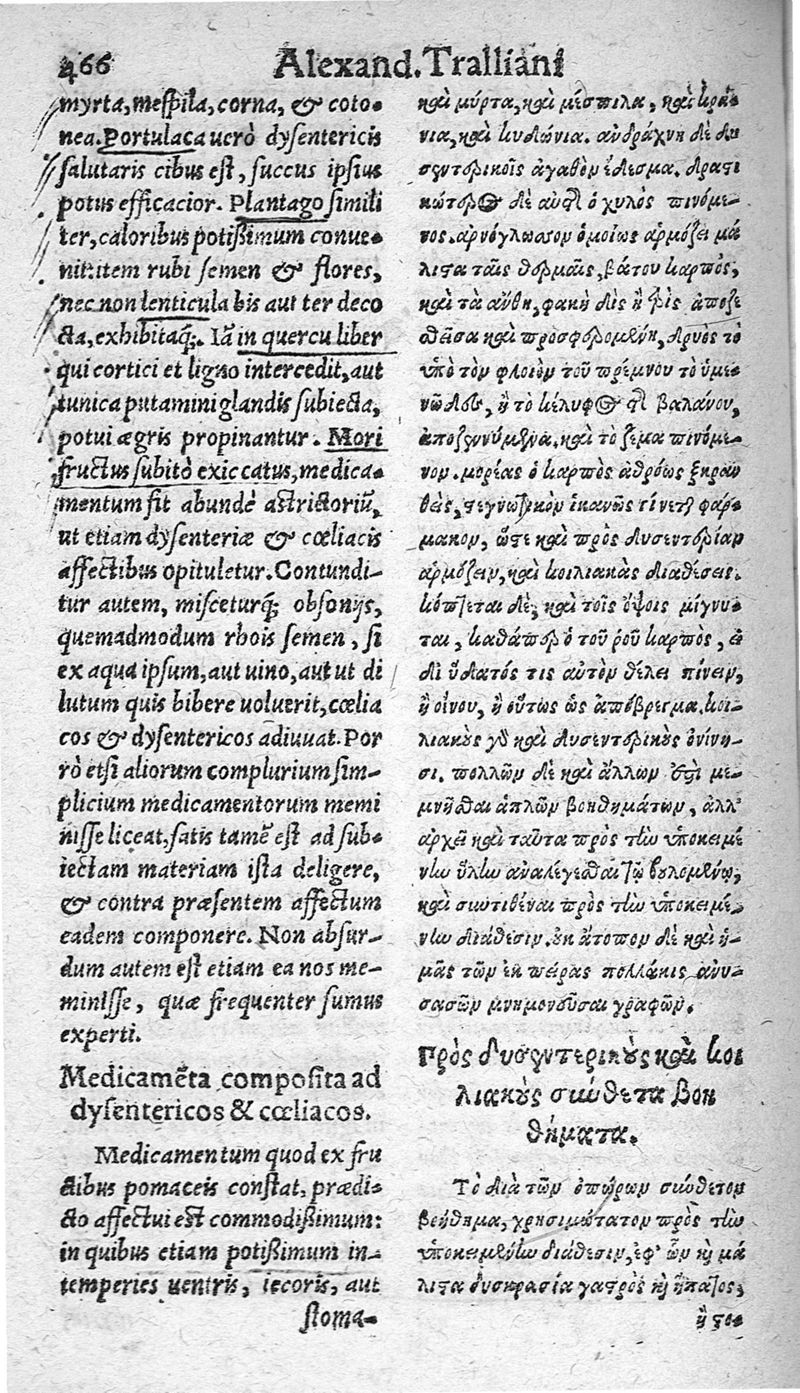 466 Alexand. Tralliani
myrta, mespila, corna, & coto-
nea. Portulaca uerò dysentericis
salutaris cibus est, succus ipsius
potus efficacior. Plantago simili
ter, caloribus potißimum conue-
nit: item rubi semen & flores,
nec non lenticula bis aut ter deco
cta, exhibitaq́;. Iā in quercu liber
qui cortici et ligno intercedit, aut
tunica putamini glandis subiecta,
potui ægris propinantur. Mori
fructus subitò exiccatus, medica-
mentum fit abundè astrictoriū,
ut etiam dysenteriæ & cœliacis
affectibus opituletur. Contundi-
tur autem, misceturq́; obsonijs,
quemadmodum rhois semen, si
ex aqua ipsum, aut uino, aut ut di
lutum quis bibere uoluerit, cœlia
cos & dysentericos adiuuat. Por
rò etsi aliorum complurium sim-
plicium medicamentorum memi
nisse liceat, satis tamē est ad sub-
iectam materiam ista deligere,
& contra præsentem affectum
eadem componere. Non absur-
dum autem est etiam ea nos me-
minisse, quæ frequenter sumus
experti.
Medicamēta composita ad
dysentericos & cœliacos.
Medicamentum quod ex fru
ctibus pomaceis constat, prædi-
cto affectui est commodißimum:
in quibus etiam potißimum in-
temperies uentris, iecoris, aut
stoma-
καὶ μύρτα, καὶ μέσπιλα, καὶ κρά-
νια, καὶ κυδώνια. ἀνδράχνη δὲ δυ
σεντερικοῖς ἀγαθὸν ἔδεσμα. δραστι
κώτερος δὲ αὐτῆς ὁ χυλὸς πινόμε-
νος. ἀρνόγλωσσον ὁμοίως ἁρμόζει μά
λιστα ταῖς θερμαῖς, βάτου καρπὸς,
καὶ τὰ ἄνθη, φακῆ δὶς ἢ τρὶς ἀποζε
σθεῖσα καὶ προσφερομένη, δρυὸς τὸ
ὑπὸ τὸν φλοιὸν τοῦ πρέμνου τὸ ὑμε-
νῶδες, ἢ τὸ κέλυφος τῆς βαλάνου,
ἀποζεννύμενα. καὶ τὸ ζέμα πινόμε-
νον. μορέας ὁ καρπὸς ἀθρόως ξηραν
θεὶς, στεγνωτικὸν ἱκανῶς γίνεται φάρ-
μακον, ὥστε καὶ πρὸς δυσεντερίαν
ἁρμόζειν, καὶ κοιλιακὰς διαθέσεις.
κόπτεται δὲ, καὶ τοῖς ὄψοις μίγνυ-
ται, καθάπερ ὁ τοῦ ροῦ καρπὸς, εἰ
δι ὕδατός τις αὐτὸν θέλει πίνειν,
ἢ οἴνου, ἢ οὕτως ὡς ἀπόβρεγμα. κοι-
λιακοὺς γὸ καὶ δυσεντερικοὺς ὀνίνη-
σι. πολλῶν δὲ καὶ ἄλλων ἔστι με-
μνῆσθαι ἁπλῶν βοηθημάτων, ἀλλ'
ἀρκεῖ καὶ ταῦτα πρὸς τὴν ὑποκειμέ
νην ὕλην ἀναλέγεσθαι τῷ βουλομένῳ,
καὶ συντιθέναι πρὸς τὴν ὑποκειμέ-
νην διάθεσιν. οὐκ ἄτοπον δὲ καὶ ἡ-
μᾶς τῶν ἐκ πείρας πολλάκις ἀνυ-
σασῶν μνημονεῦσαι γραφῶν.
Πρὸς δυσεντερικοὺς καὶ κοι
λιακοὺς σύνθετα βοη
θήματα.
Τὸ διὰ τῶν ὀπώρων σύνθετον
βοήθημα, χρησιμώτατον πρὸς τὴν
ὑποκειμένην διάθεσιν, ἐφ' ὧν καὶ μά
λιστα δυσκρασία γαστρὸς καὶ ἥπατος,
ἢ στο-